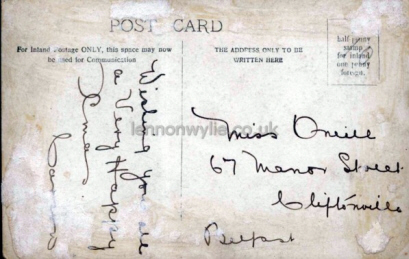 POST CARD
For Inland Postage ONLY, this space may now
be used for Communication
THE ADDRESS ONLY TO BE
WRITTEN HERE
half penny
stamp
for inland
one penny
foreign.
Wishing you
a Very Happy
Xmas
lennonwylie.co.uk
Miss Oneill
67 Manor Street
Cliftonville
Belfast